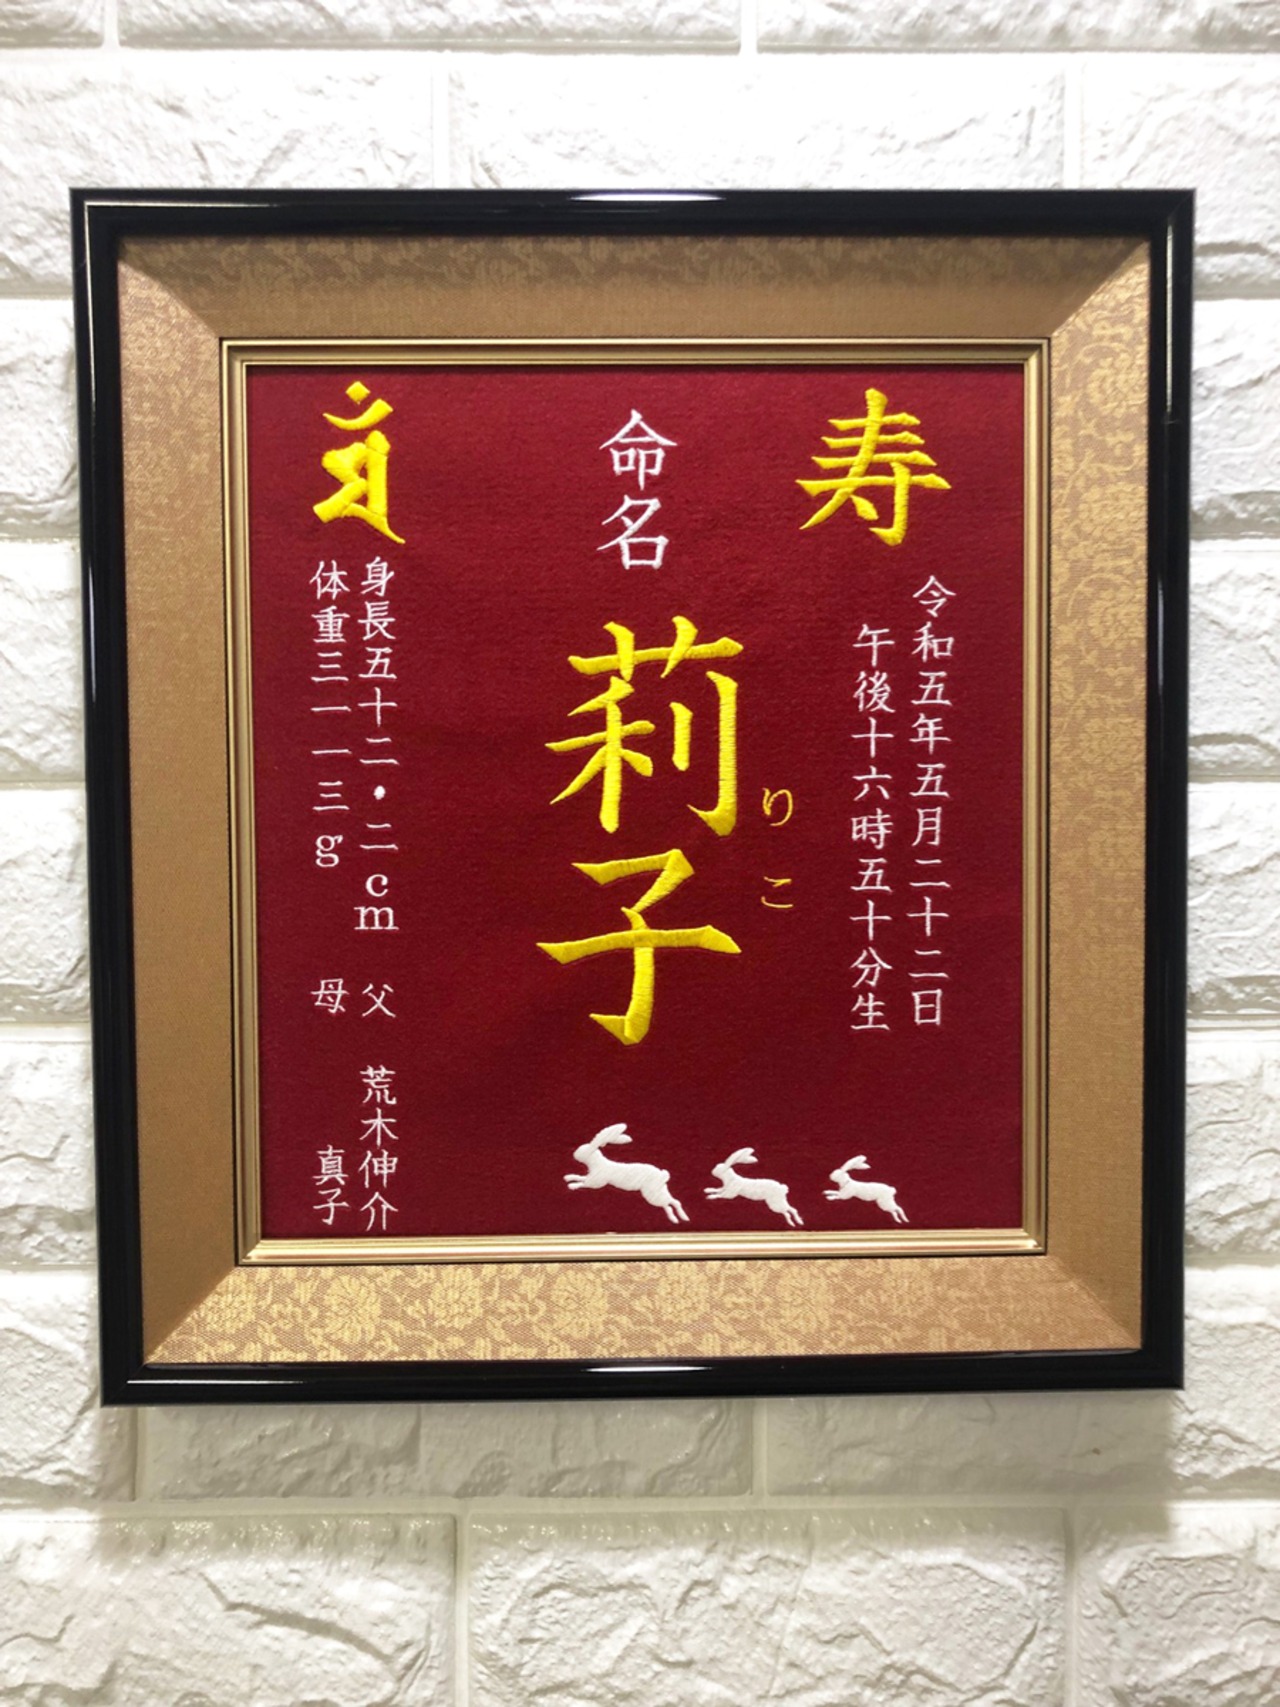 寿
令和五年五月二十二日
午後十六時五十分生
命名
莉子
りこ
身長五十二・二cm
体重三一一三g
父 荒木伸介
母 真子